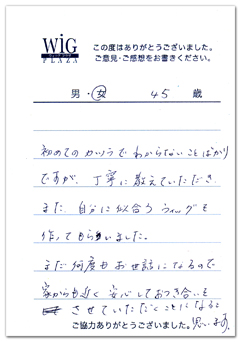 WiG
PLAZA
この度はありがとうございました。
ご意見・ご感想をお書きください。
男・女 45 歳
初めてのカツラでわからないことばかり
ですが、丁寧に教えていただき
また、自分に似合うウィッグを
作ってもらいました。
まだ何度もお世話になるので
家からも近く安心しておつき合いを
させていただくことになると
思います。
ご協力ありがとうございました。